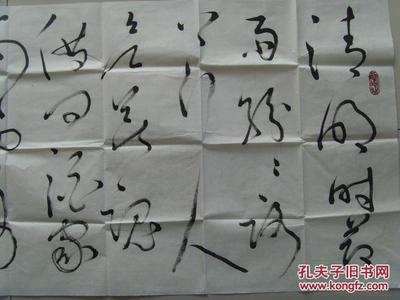 清明时节
雨纷纷路
上行人
欲断魂
借问酒家
孔夫子旧书网
www.kongfz.com